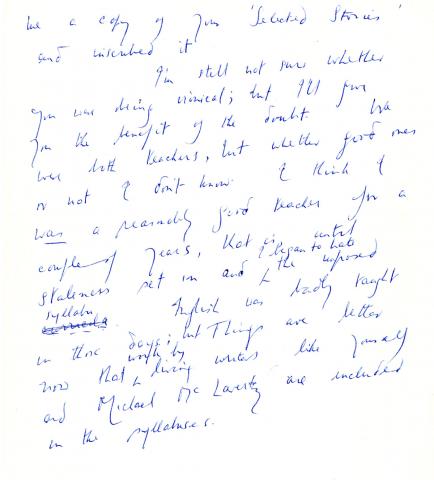 me a copy of your 'Selected Stories'
and inscribed it
I'm still not sure whether
you was being ironical; but I'll give
you the benefit of the doubt. We
were both teachers, but whether good ones
or not I don't know. I think I
was a reasonably good teacher for a
couple of years, that is until
staleness set in and I began to hate the imposed
syllabus. English was badly taught
in those days; but things are better
now that work by living writers like yourself
and Michael McLaverty are included
in the syllabuses.